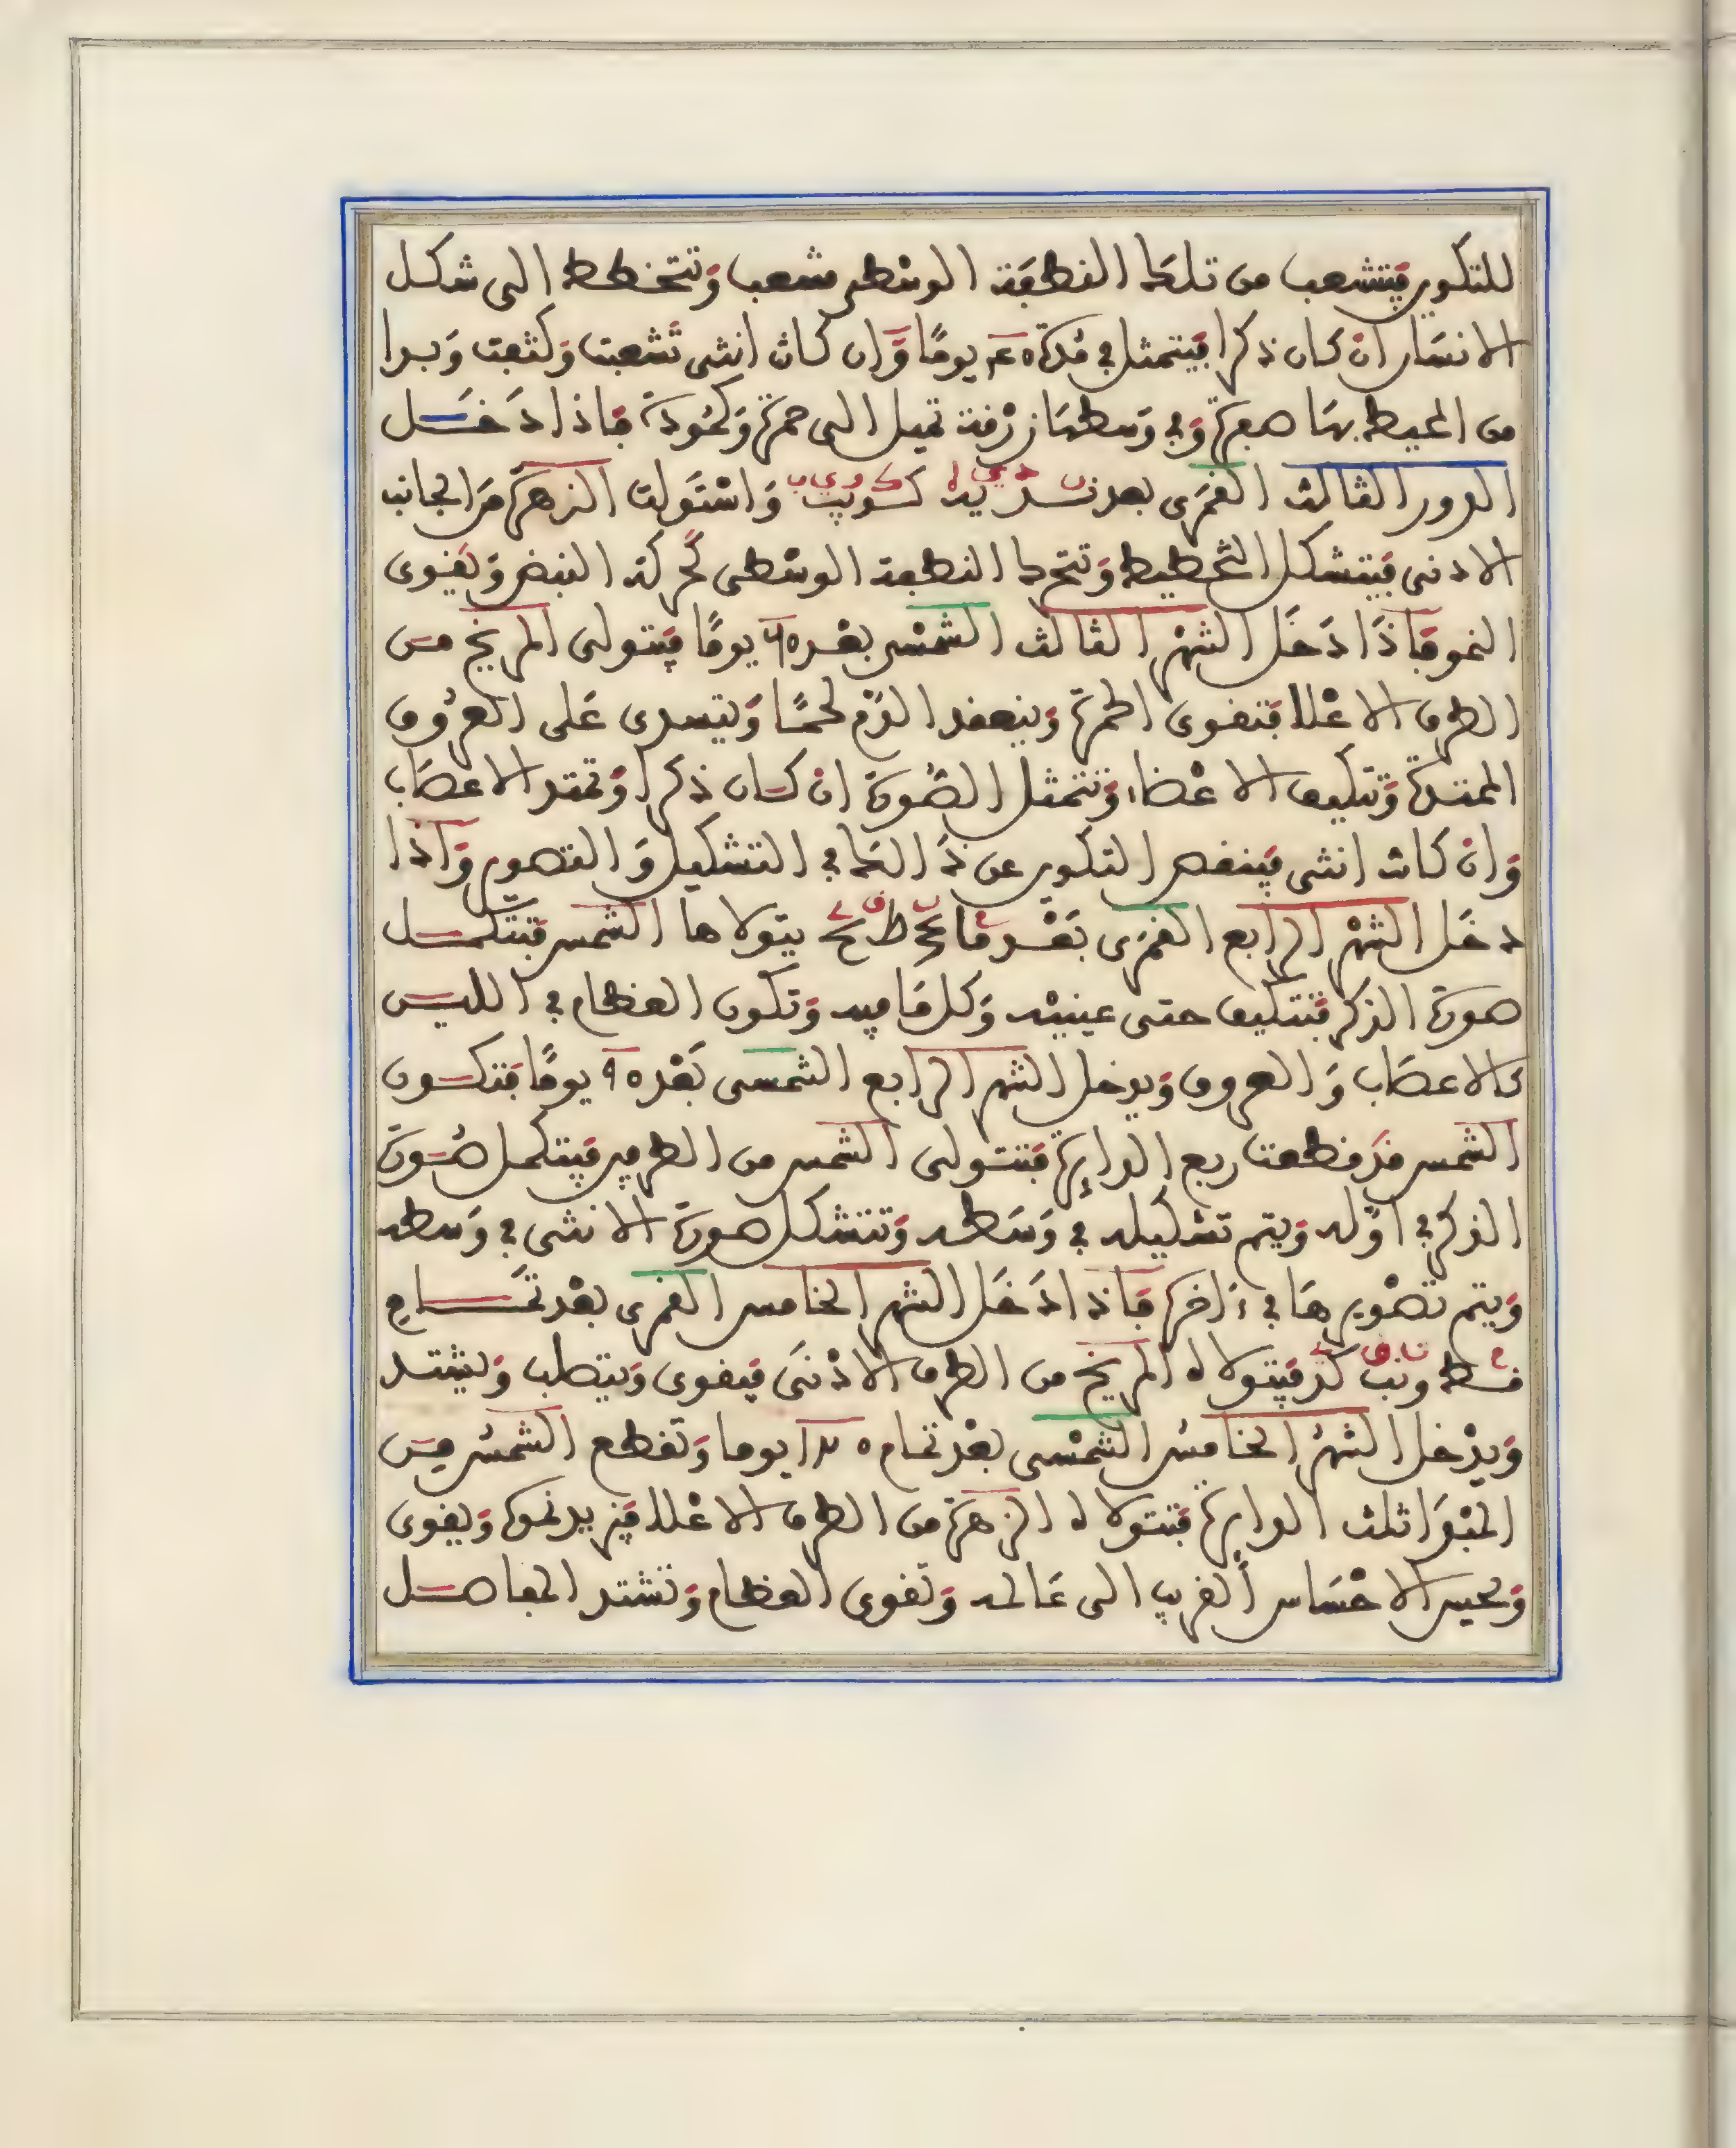 للتكوير فيتشعب من تلك النطفة الوسطى شعب وتتخطط الى شكل
الانسان ان كان ذكرا فيتمثل في مدة يوما وان كان انثى تشعبت وكثفت وبدا
من المحيط بها صفرة وفي وسطها زرقة تميل الى حمرة وكمودة فاذا دخل
الدور الثالث القمرى بعد واستولت الزهرة من الجانب
الادنى فيتشكل التخطيط وتتحرك النطفة الوسطى كحركة النبض ويقوى
النمو فاذا دخل الشهر الثالث الشمسى بعد ٦٥ يوما فيتولى المريخ من
الطرف الاعلا فتقوى الحمرة وينعقد الدم لحما ويتسدى على العروق
الممتدة وتتكيف الاعضاء وتتمثل الصورة ان كان ذكرا وتمتد الاعصاب
وان كانت انثى فينقص التكوير عن ذالك في التشكيل والتصوير واذا
دخل الشهر الرابع القمرى بعد يتولاها الشمس فتتكمل
صورة الذكر فتتكيف حتى عينيه وكل ما فيه وتكون العظام في الليس
كالاعصاب والعروق ويدخل الشهر الرابع الشمسى بعد ٩٥ يوما فتكون
الشمس قد قطعت ربع الدايرة فتتولى الشمس من الطرفين فيتكمل صورة
الذكر في اوله ويتم تشكيله في وسطه وتتشكل صورة الانثى في وسطه
ويتم تصويرها في ءاخره فاذا دخل الشهر الخامس القمرى بعد تمام
فيتولاه المريخ من الطرف الادنى فيقوى ويتصلب ويشتد
ويدخل الشهر الخامس الشمسى بعد تمام يوما وتقطع الشمس من
المبدا ثلث الدايرة فتتولاه الزهرة من الطرف الاعلا فيزيد نموه ويقوى
ويحيس الاحساس القريب الى عالمه وتقوى العظام وتشتد المفاصل